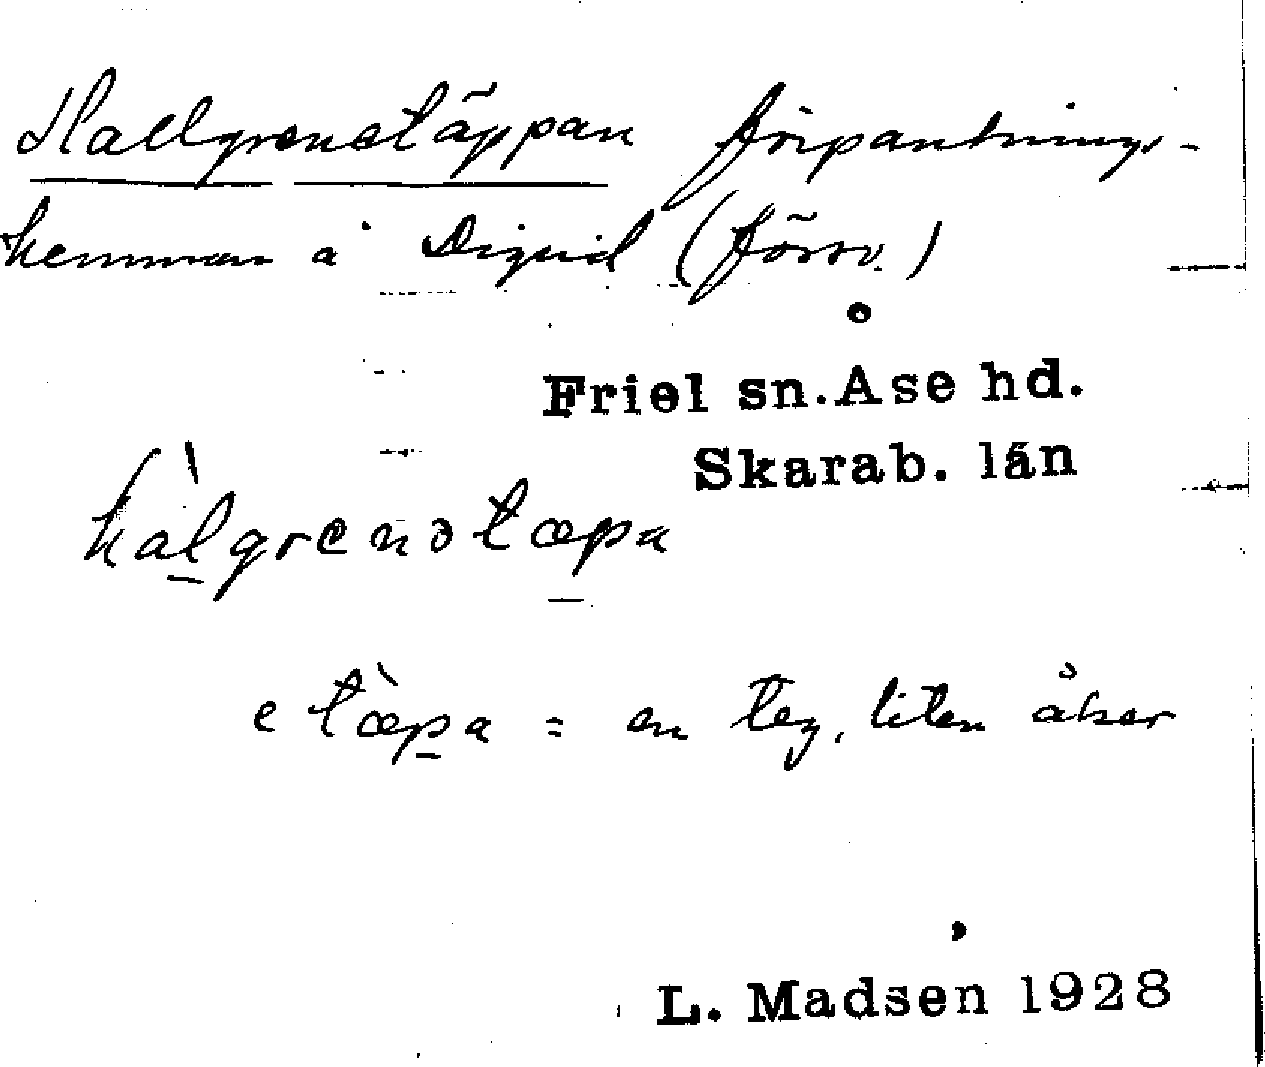 Hallgrenstäppan förpantnings-
hemman å Diguid (försv.)
Friel sn. Åse hd.
Skarab. län
hàlgrenstæpa
e tæ̀pa = en teg, liten åker
L. Madsen 1928